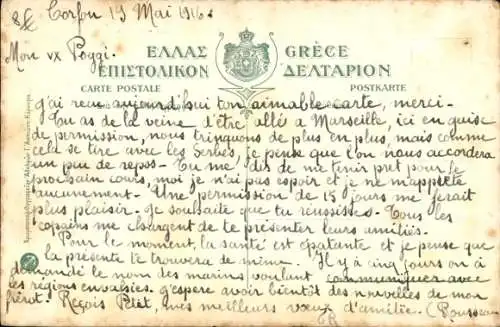 Corfou 19 Mai 1916
Mon vx Poggi.
ΕΛΛΑΣ GRÈCE
ΕΠΙΣΤΟΛΙΚΟΝ ΔΕΛΤΑΡΙΟΝ
CARTE POSTALE POSTKARTE
j'ai reçu aujourd'hui ton aimable carte, merci-
Tu as de la veine d'être allé à Marseille, ici en guise
de permission, nous trinquons de plus en plus, mais comme
cela se tire avec les Serbes, je pense que l'on nous accordera
un peu de repos- Tu me dis de me tenir pret pour le
prochain cours, moi je n'ai pas espoir et je ne m'apprete
aucunement- Une permission de 15 jours me ferait
plus plaisir. Je souhaite que tu réussisses- Tous les
copains me chargent de te présenter leurs amitiés.
Pour le moment, la santé est épatante et je pense que
la présente te trouvera de même. Il y a cinq jours on a
demandé le nom des marins voulant communiquer avec
les régions envahies. j'espere avoir bientôt des nouvelles de mon
frérot. Reçois Petit, mes meilleurs vœux d'amitié. (Rousseau